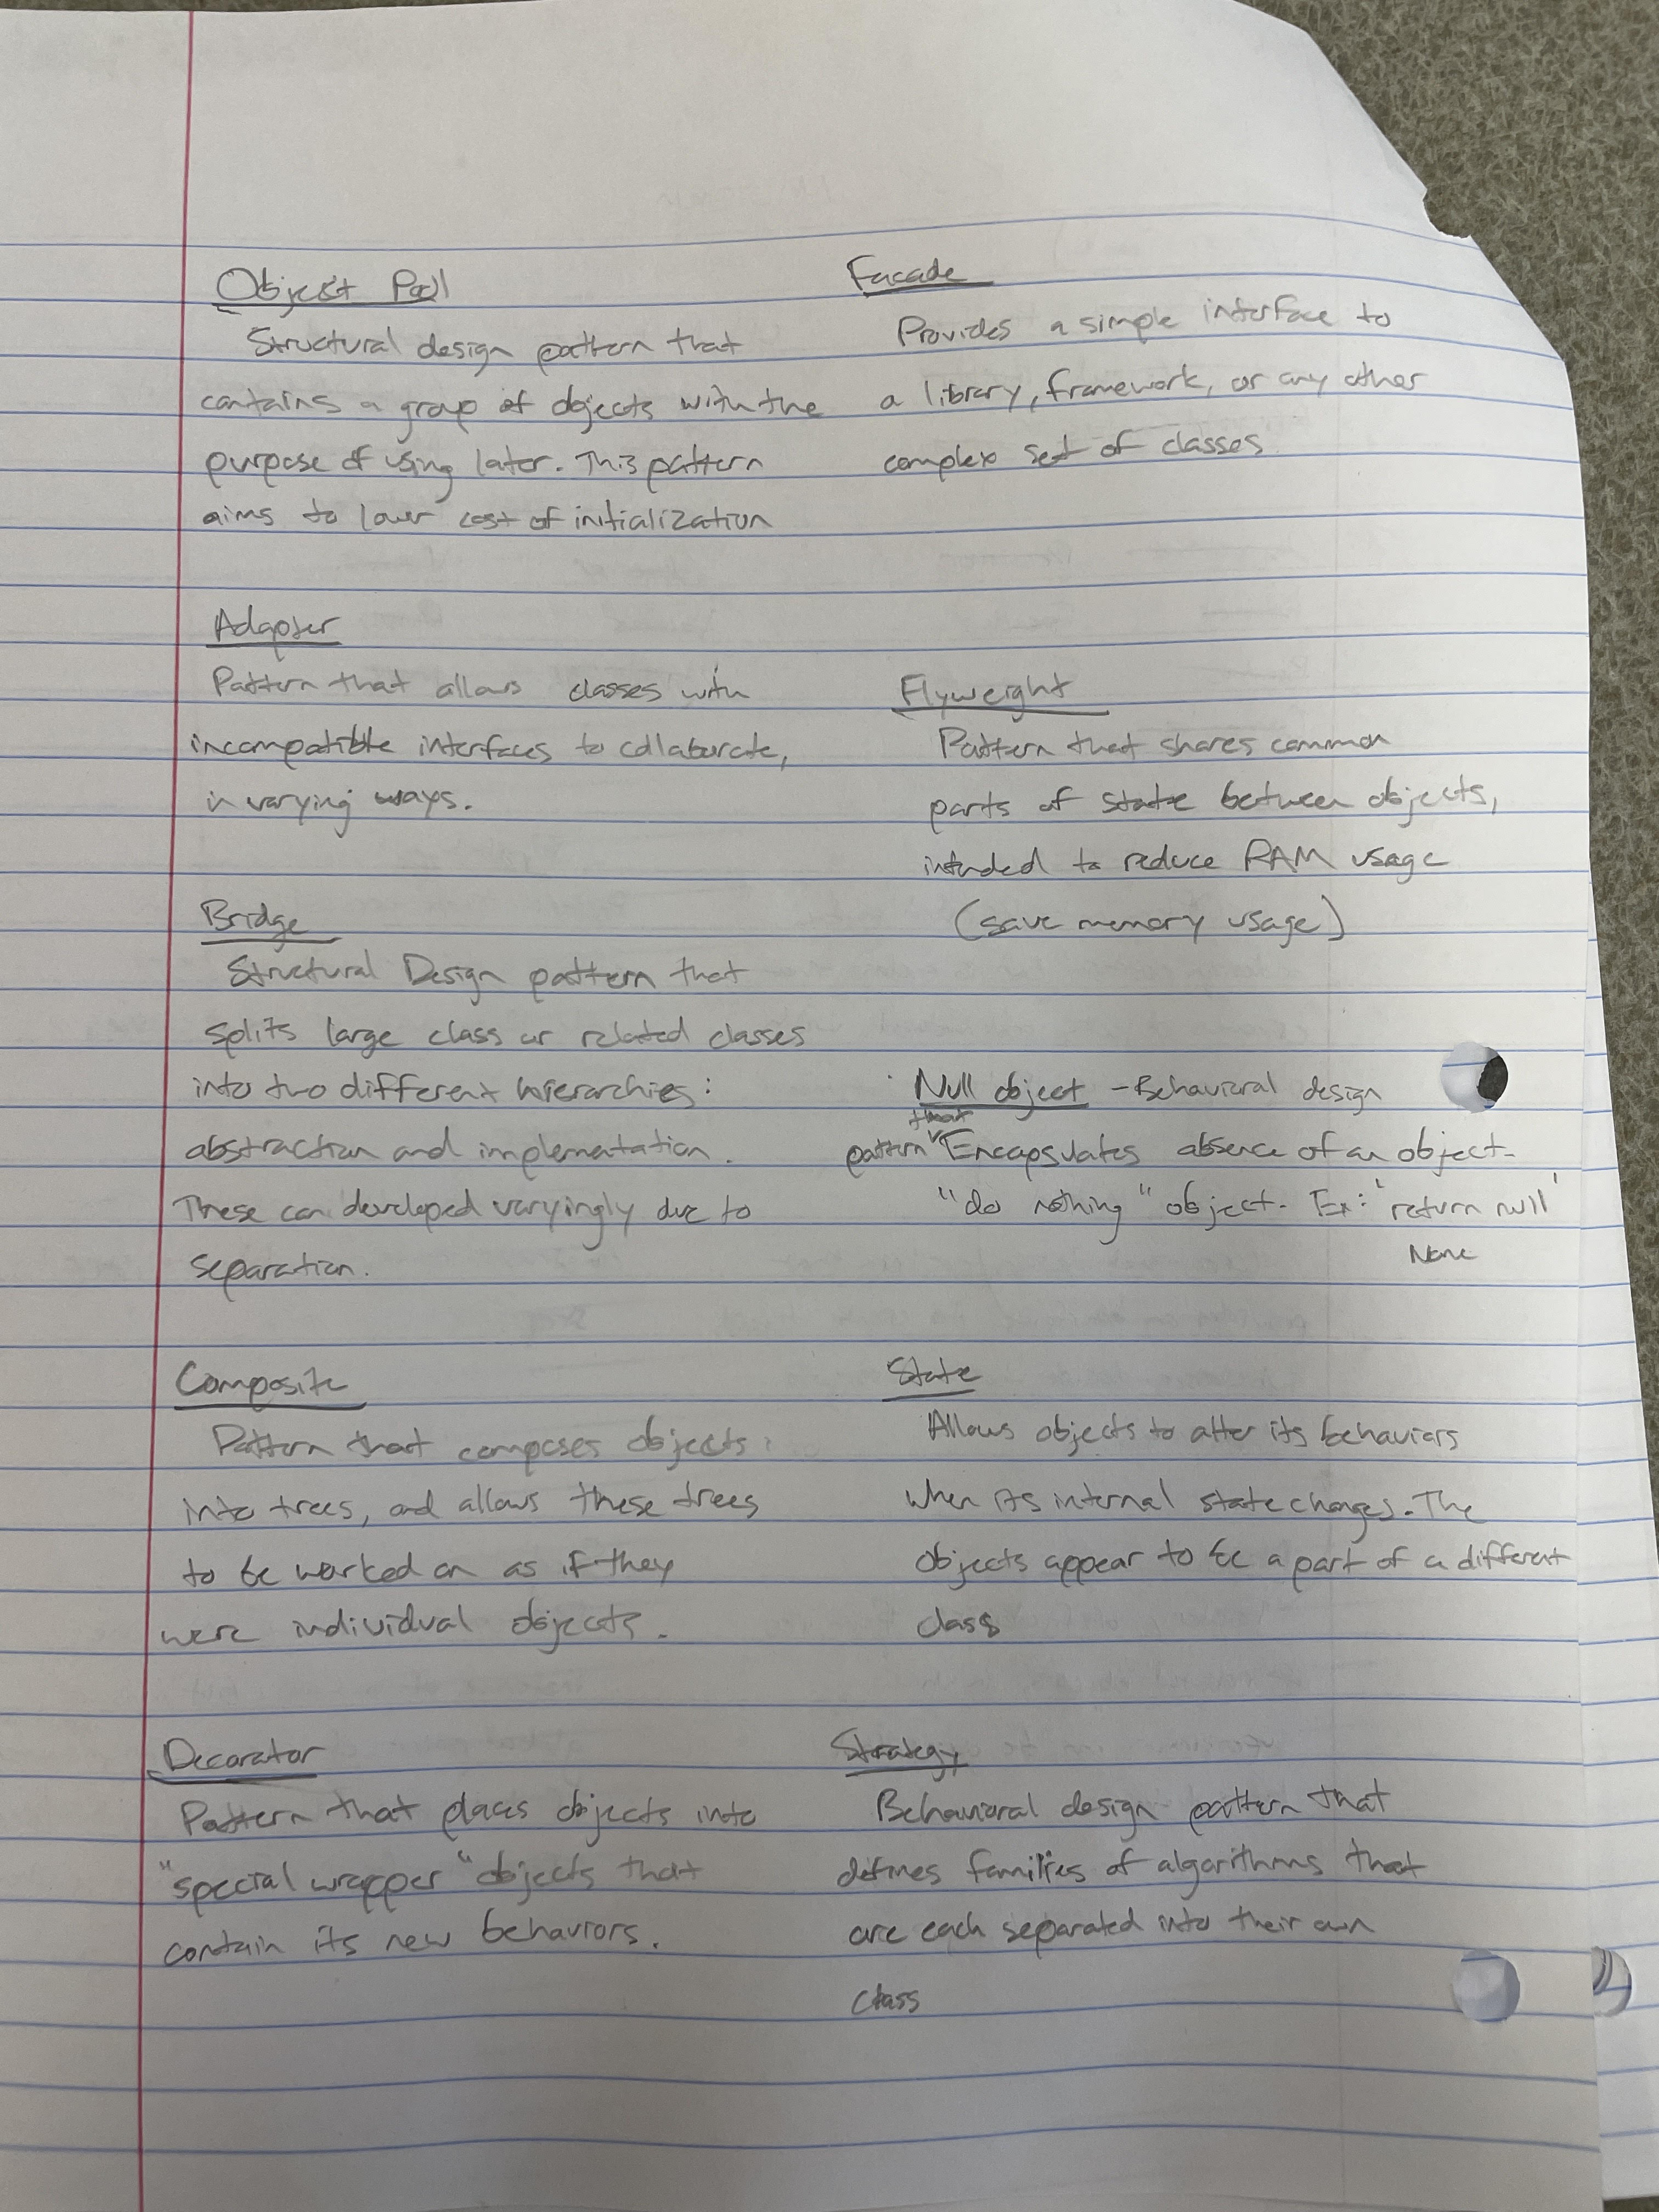 Object Pool
Structural design pattern that
contains a group of objects with the
purpose of using later. This pattern
aims to lower cost of initialization
Adapter
Pattern that allows classes with
incompatible interfaces to collaborate,
in varying ways.
Bridge
Structural Design pattern that
splits large class or related classes
into two different hierarchies:
abstraction and implementation.
These can developed varyingly due to
separation.
Composite
Pattern that composes objects
into trees, and allows these trees
to be worked on as if they
were individual objects.
Decorator
Pattern that places objects into
"special wrapper" objects that
contain its new behaviors.
Facade
Provides a simple interface to
a library, framework, or any other
complex set of classes
Flyweight
Pattern that shares common
parts of state between objects,
intended to reduce RAM usage
(save memory usage)
Null object - Behavioral design
that
pattern Encapsulates absence of an object-
"do nothing" object. Ex: 'return null'
None
State
Allows objects to alter its behaviors
when its internal state changes. The
objects appear to be a part of a different
class
Strategy
Behavioral design pattern that
defines families of algorithms that
are each separated into their own
class